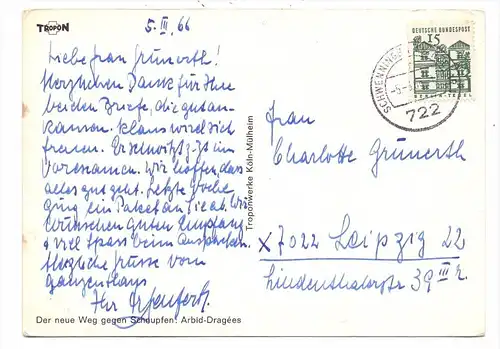 TROPON
5. III. 66
Liebe Frau Grünerth!
Herzlichen Dank für Ihre
beiden Briefe, die gut an-
kamen. Klaus wird sich
freuen. Er schwitzt z. Zt. im
Vorexamen. Wir hoffen, das
alles gut geht. Letzte Woche
ging ein Paket an Sie ab. Wir
wünschen guten Empfang
u viel Spass beim Auspacken.
Herzliche Grüsse vom
ganzen Haus
Ihr
Der neue Weg gegen Schnupfen: Arbid-Dragées
Troponwerke Köln-Mülheim
DEUTSCHE BUNDESPOST
15
SCHWENNINGEN
722
Frau
Charlotte Grünerth
x 7022 Leipzig 22
Lindenthalerstr 39 III r.